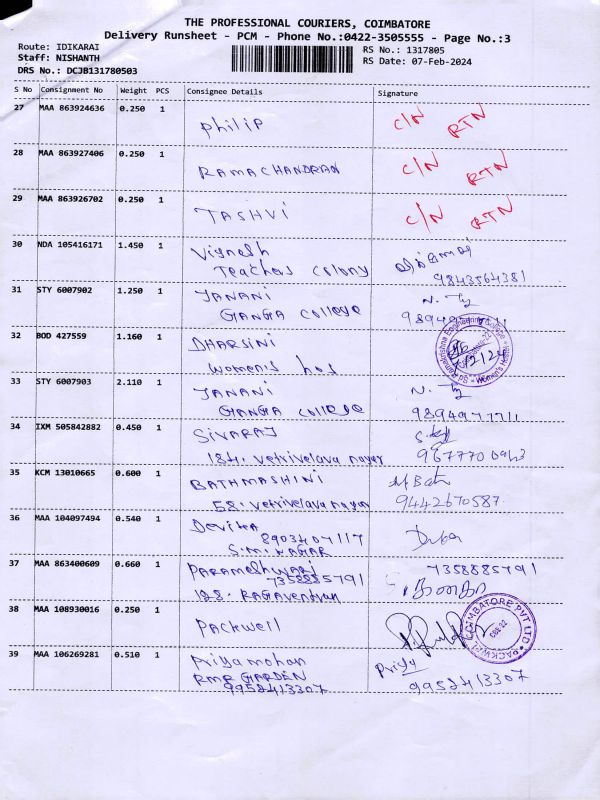 THE PROFESSIONAL COURIERS, COIMBATORE
Delivery Runsheet - PCM - Phone No.:0422-3505555 - Page No.:3
Route: IDIKARAI
RS No.: 1317805
Staff: NISHANTH
RS Date: 07-Feb-2024
DRS No.: DCJB131780503
S No Consignment No Weight PCS Consignee Details Signature
27 MAA 863924636 0.250 1 Philip C/N RTN
28 MAA 863927406 0.250 1 RAMACHANDRAN C/N RTN
29 MAA 863926702 0.250 1 TASHVI C/N RTN
30 NDA 105416171 1.450 1 Vignesh
Teachers colony 9843564381
31 STY 6007902 1.250 1 JANANI
GANGA COLLEGE
32 BOD 427559 1.160 1 DHARSINI
Women's hos
33 STY 6007903 2.110 1 JANANI
GANGA COLLEGE
34 IXM 505842882 0.450 1 SIVARAJ
184. Vetrivelava nagar
35 KCM 13010665 0.600 1 BATHMASHINI
58. Vetrivelava nagar 9442670587
36 MAA 104097494 0.540 1 Devika
8903407117
S.M. NAGAR
37 MAA 863400609 0.660 1 PARAMESHWARI 7358885791
7358885791
128. RAGAVENDRAN
38 MAA 108930016 0.250 1 PACKWELL
39 MAA 106269281 0.510 1 Priya mohan Priya
RMR GARDEN 9952413307
9952413307